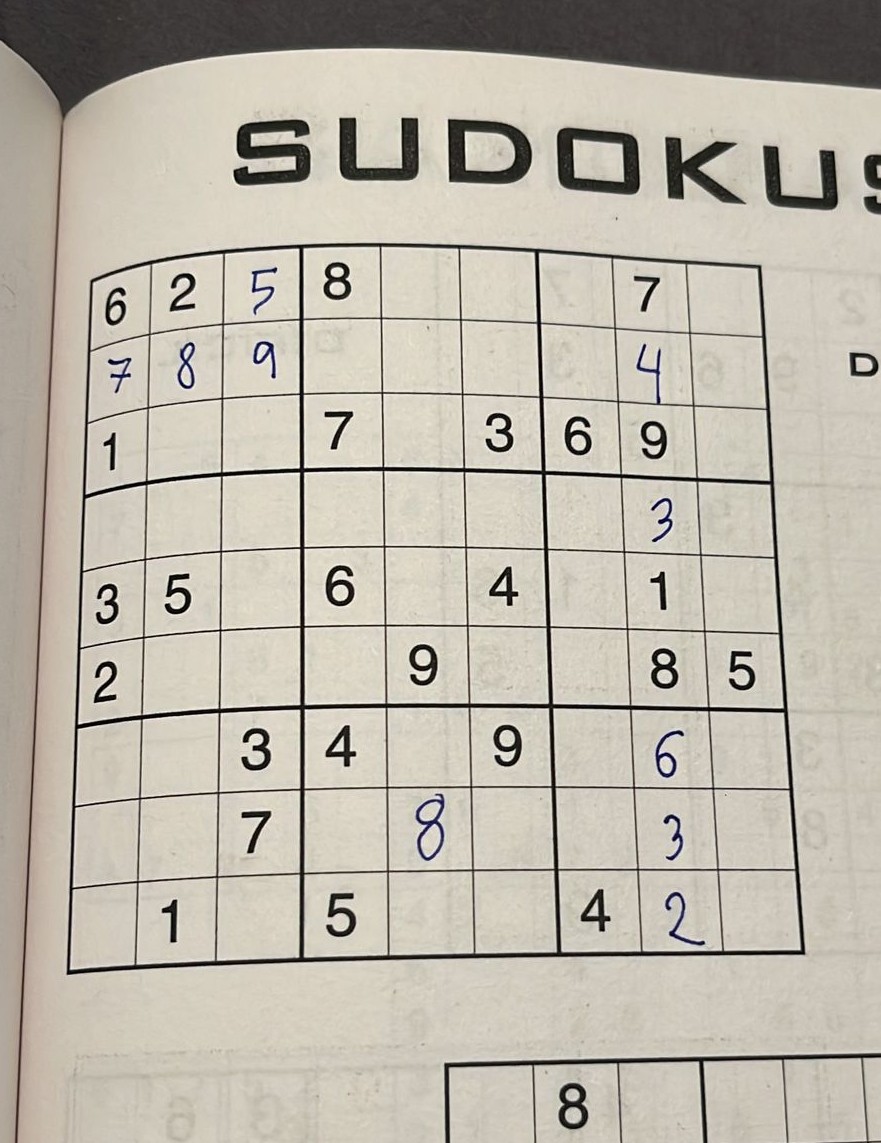 SUDOKUS
D
6 2 5 8 7
7 8 9 4
1 7 3 6 9
3
3 5 6 4 1
2 9 8 5
3 4 9 6
7 8 3
1 5 4 2
8